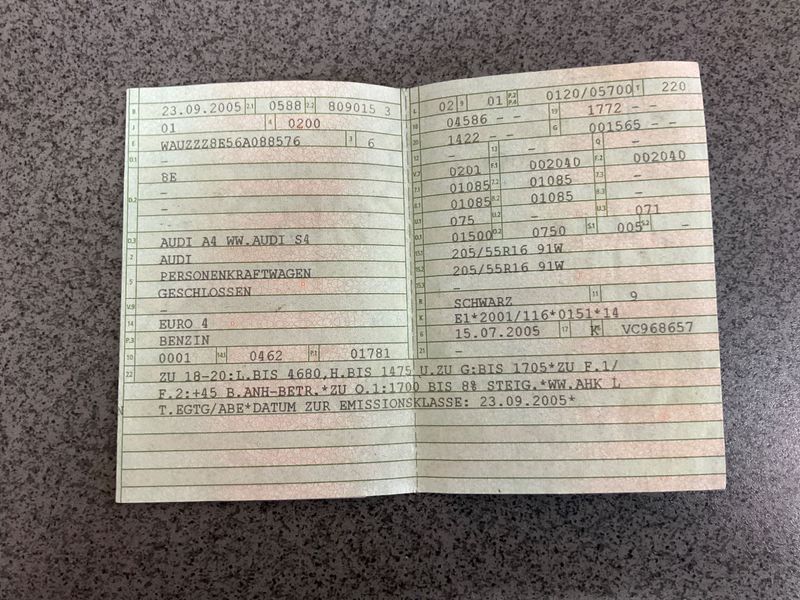 B 23.09.2005 2.1 0588 2.2 809015 3
J 01 4 0200
E WAUZZZ8E56A088576 3 6
D.1 -
8E
D.2 -
-
-
D.3 AUDI A4 WW.AUDI S4
2 AUDI
5 PERSONENKRAFTWAGEN
GESCHLOSSEN
V.9 -
14 EURO 4
P.3 BENZIN
10 0001 14.1 0462 P.1 01781
L 02 9 01 P.2 P.4 0120/05700 T 220
18 04586 - - 19 1772 - -
20 1422 - - G 001565 - -
12 - 13 - Q -
V.7 0201 F.1 002040 F.2 002040
7.1 01085 7.2 01085 7.3 -
8.1 01085 8.2 01085 8.3 -
U.1 075 U.2 - U.3 071
O.1 01500 O.2 0750 S.1 005 S.2 -
15.1 205/55R16 91W
15.2 205/55R16 91W
15.3 -
R SCHWARZ 11 9
K E1*2001/116*0151*14
6 15.07.2005 17 K 16 VC968657
21 -
22 ZU 18-20:L.BIS 4680,H.BIS 1475 U.ZU G:BIS 1705*ZU F.1/
F.2:+45 B.ANH-BETR.*ZU O.1:1700 BIS 8% STEIG.*WW.AHK L
T.EGTG/ABE*DATUM ZUR EMISSIONSKLASSE: 23.09.2005*